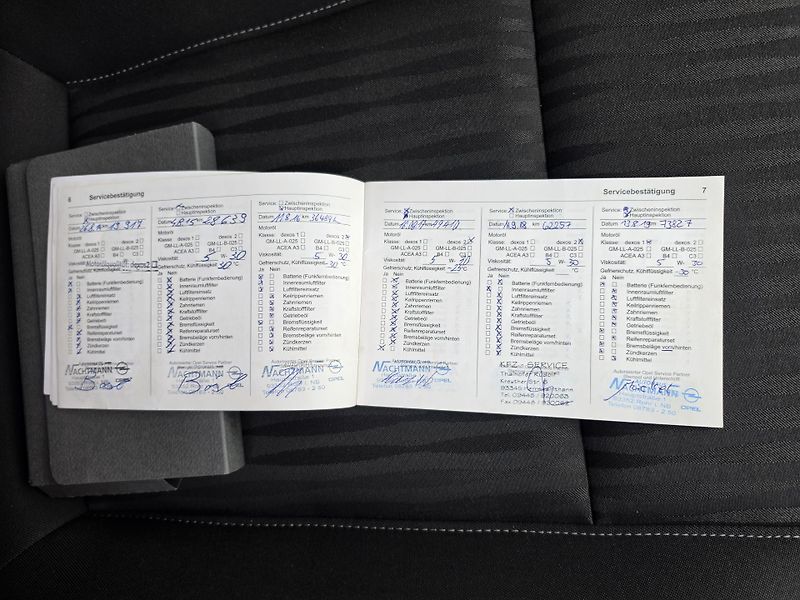 6 Servicebestätigung
Service: Zwischeninspektion
Hauptinspektion
Datum 19.917
Motoröl
Klasse: dexos 1 dexos 2
GM-LL-A-025 GM-LL-B-025
ACEA A3 B4 C3
Viskosität
Gefrierschutz, Kühlflüssigkeit -30 °C
Ja Nein
Batterie (Funkfernbedienung)
Innenraumluftfilter
Luftfiltereinsatz
Keilrippenriemen
Zahnriemen
Kraftstofffilter
Getriebeöl
Bremsflüssigkeit
Reifenreparaturset
Bremsbeläge vorn/hinten
Zündkerzen
Kühlmittel
NACHTMANN
OPEL
Service: Zwischeninspektion
Hauptinspektion
Datum 4.8.15 km 28639
Motoröl
Klasse: dexos 1 dexos 2
GM-LL-A-025 GM-LL-B-025
ACEA A3 B4 C3
Viskosität: 5 W- 30
Gefrierschutz, Kühlflüssigkeit -30 °C
Ja Nein
Batterie (Funkfernbedienung)
Innenraumluftfilter
Luftfiltereinsatz
Keilrippenriemen
Zahnriemen
Kraftstofffilter
Getriebeöl
Bremsflüssigkeit
Reifenreparaturset
Bremsbeläge vorn/hinten
Zündkerzen
Kühlmittel
Autorisierter Opel Service Partner
NACHTMANN
OPEL
Service: Zwischeninspektion
Hauptinspektion
Datum 11.8.16 km
Motoröl
Klasse: dexos 1 dexos 2
GM-LL-A-025 GM-LL-B-025
ACEA A3 B4 C3
Viskosität: 5 W- 30
Gefrierschutz, Kühlflüssigkeit -30 °C
Ja Nein
Batterie (Funkfernbedienung)
Innenraumluftfilter
Luftfiltereinsatz
Keilrippenriemen
Zahnriemen
Kraftstofffilter
Getriebeöl
Bremsflüssigkeit
Reifenreparaturset
Bremsbeläge vorn/hinten
Zündkerzen
Kühlmittel
Autorisierter Opel Service Partner
NACHTMANN
OPEL
Servicebestätigung 7
Service: Zwischeninspektion
Hauptinspektion
Datum
Motoröl
Klasse: dexos 1 dexos 2
GM-LL-A-025 GM-LL-B-025
ACEA A3 B4 C3
Viskosität: 5 W-
Gefrierschutz, Kühlflüssigkeit -25 °C
Ja Nein
Batterie (Funkfernbedienung)
Innenraumluftfilter
Luftfiltereinsatz
Keilrippenriemen
Zahnriemen
Kraftstofffilter
Getriebeöl
Bremsflüssigkeit
Reifenreparaturset
Bremsbeläge vorn/hinten
Zündkerzen
Kühlmittel
NACHTMANN
OPEL
Service: Zwischeninspektion
Hauptinspektion
Datum km 62257
Motoröl
Klasse: dexos 1 dexos 2
GM-LL-A-025 GM-LL-B-025
ACEA A3 B4 C3
Viskosität: 5 W- 30
Gefrierschutz, Kühlflüssigkeit °C
Ja Nein
Batterie (Funkfernbedienung)
Innenraumluftfilter
Luftfiltereinsatz
Keilrippenriemen
Zahnriemen
Kraftstofffilter
Getriebeöl
Bremsflüssigkeit
Reifenreparaturset
Bremsbeläge vorn/hinten
Zündkerzen
Kühlmittel
KFZ-SERVICE
Service: Zwischeninspektion
Hauptinspektion
Datum 13.8.19 73827
Motoröl
Klasse: dexos 1 dexos 2
GM-LL-A-025 GM-LL-B-025
ACEA A3 B4 C3
Viskosität: 5 W- 30
Gefrierschutz, Kühlflüssigkeit -30 °C
Ja Nein
Batterie (Funkfernbedienung)
Innenraumluftfilter
Luftfiltereinsatz
Keilrippenriemen
Zahnriemen
Kraftstofffilter
Getriebeöl
Bremsflüssigkeit
Reifenreparaturset
Bremsbeläge vorn/hinten
Zündkerzen
Kühlmittel
Autorisierter Opel Service Partner
OPEL